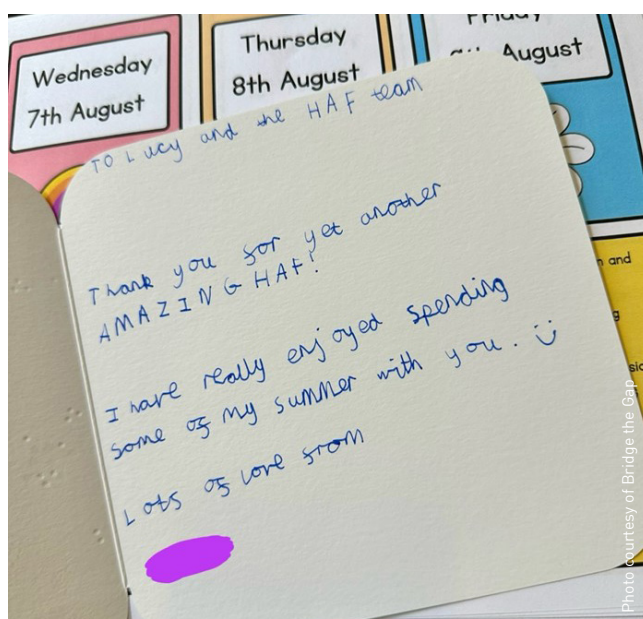 Wednesday
7th August
Thursday
8th August
Friday
August
To Lucy and the HAF team
Thank you for yet another
AMAZING HAF!
I have really enjoyed spending
some of my summer with you. :)
Lots of love from
and
Photo courtesy of Bridge the Gap